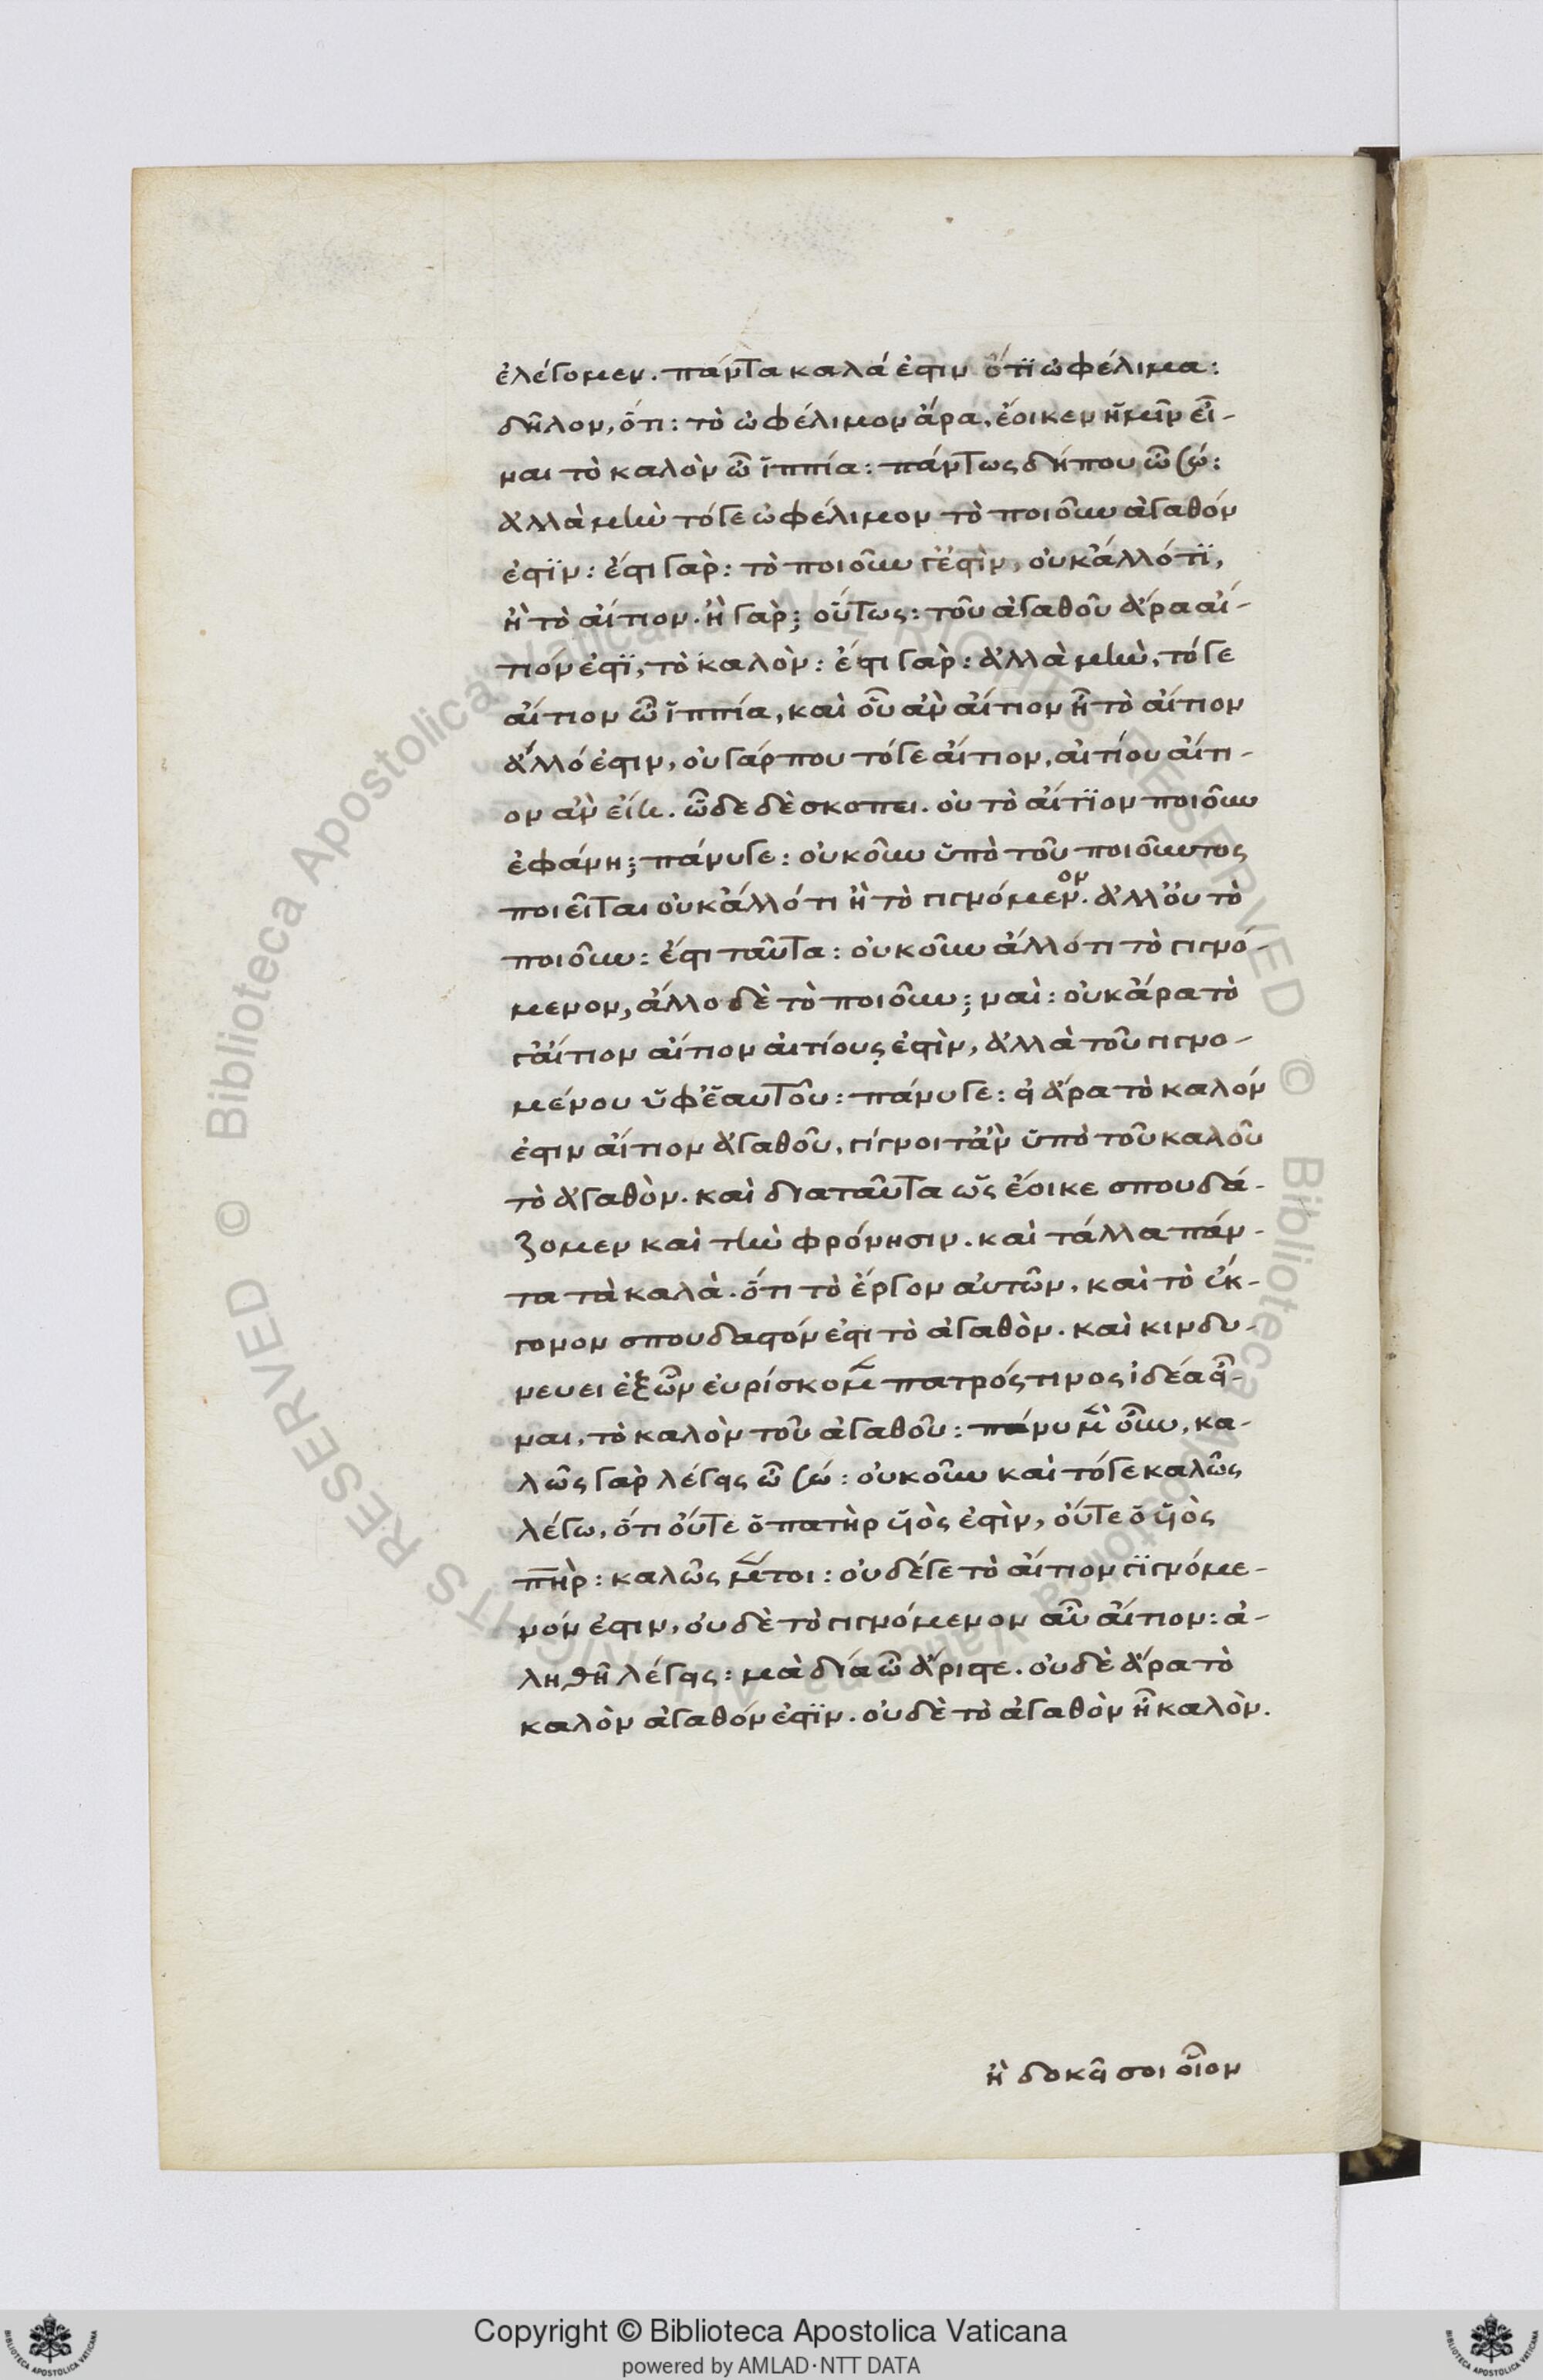 ἐλέγομεν. πάντα καλά ἐστιν ὅτι ὠφέλιμα:
δῆλον, ὅτι: τὸ ὠφέλιμον ἄρα, ἔοικεν ἡμῖν εἶ-
ναι τὸ καλὸν ὦ ἱππία: πάντως δήπου, ὦ σώ:
ἀλλὰ μὴν τό γε ὠφέλιμον τὸ ποιοῦν ἀγαθόν
ἐστϊν: ἔστι γὰρ: τὸ ποιοῦν γ' ἐστὶν, οὐκ ἄλλό τϊ,
ἢ τὸ αἴτιον. ἢ γὰρ; οὕτως: τοῦ ἀγαθοῦ ἄρα αἴ-
τιόν ἐστϊ, τὸ καλὸν: ἔστι γὰρ: ἀλλὰ μὴν, τό γε
αἴτιον ὦ ἱππία, καὶ οὗ ἂν αἴτιον ἦ τὸ αἴτιον
ἄλλό ἐστιν, οὐ γάρ που τό γε αἴτιον, αἰτίου αἴτι-
ον ἂν εἴη. ὧδε δὲ σκοπει. οὐ τὸ αἴτϊον ποιοῦν
ἐφάνη; πάνυ γε: οὐκοῦν ὑπὸ τοῦ ποιοῦντος
ποιεῖται οὐκ ἄλλό τι ἢ τὸ γιγνόμενον. ἀλλ' οὐ τὸ
ποιοῦν: ἔστι ταῦτα: οὐκοῦν ἄλλό τι τὸ γιγνό-
μενον, ἄλλο δὲ τὸ ποιοῦν; ναὶ: οὐκ ἄρα τὸ
γ' αἴτιον αἴτιον αἰτίους ἐστὶν, ἀλλὰ τοῦ γιγνο-
μένου ὑφ' ἑαυτοῦ: πάνυ γε: εἰ ἄρα τὸ καλόν
ἐστιν αἴτιον ἀγαθοῦ, γίγνοιτ' ἂν ὑπὸ τοῦ καλοῦ
τὸ ἀγαθὸν. καὶ διαταῦτα ὡς ἔοικε σπουδά-
ζομεν καὶ τὴν φρόνησιν. καὶ τάλλα πάν-
τα τὰ καλὰ. ὅτι τὸ ἔργον αὐτῶν, καὶ τὸ ἔκ-
γονον σπουδαστόν ἐστι τὸ ἀγαθὸν. καὶ κινδυ-
νευει ἐξ ὧν εὑρίσκομεν πατρός τινος ἰδέα εἶ-
ναι, τὸ καλὸν τοῦ ἀγαθοῦ: πάνυ μὲν οὖν, κα-
λῶς γὰρ λέγεις ὦ σώ: οὐκοῦν καὶ τό γε καλῶς
λέγω, ὅτι οὔτε ὁ πατὴρ ὑιὸς ἐστὶν, οὔτε ὁ ὑιὸς
πηρ: καλῶς μέντοι: οὐδέ γε τὸ αἴτιον γϊγνόμε-
νόν ἐστιν, οὐδὲ τὸ γιγνόμενον αὖ αἴτιον: ἀ-
ληθῆ λέγεις: μὰ δία ὦ ἄριστε. οὐδὲ ἄρα τὸ
καλὸν ἀγαθόν ἐστϊν. οὐδὲ τὸ ἀγαθὸν ἦ καλὸν.
ἢ δοκεῖ σοι οἷον
Copyright © Biblioteca Apostolica Vaticana
powered by AMLAD·NTT DATA